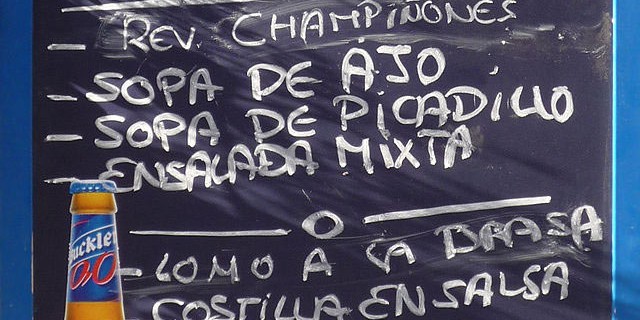 - REV. CHAMPIÑONES
- SOPA DE AJO
- SOPA DE PICADILLO
- ENSALADA MIXTA
O
- LOMO A LA BRASA
- COSTILLA EN SALSA
Buckler
0,0